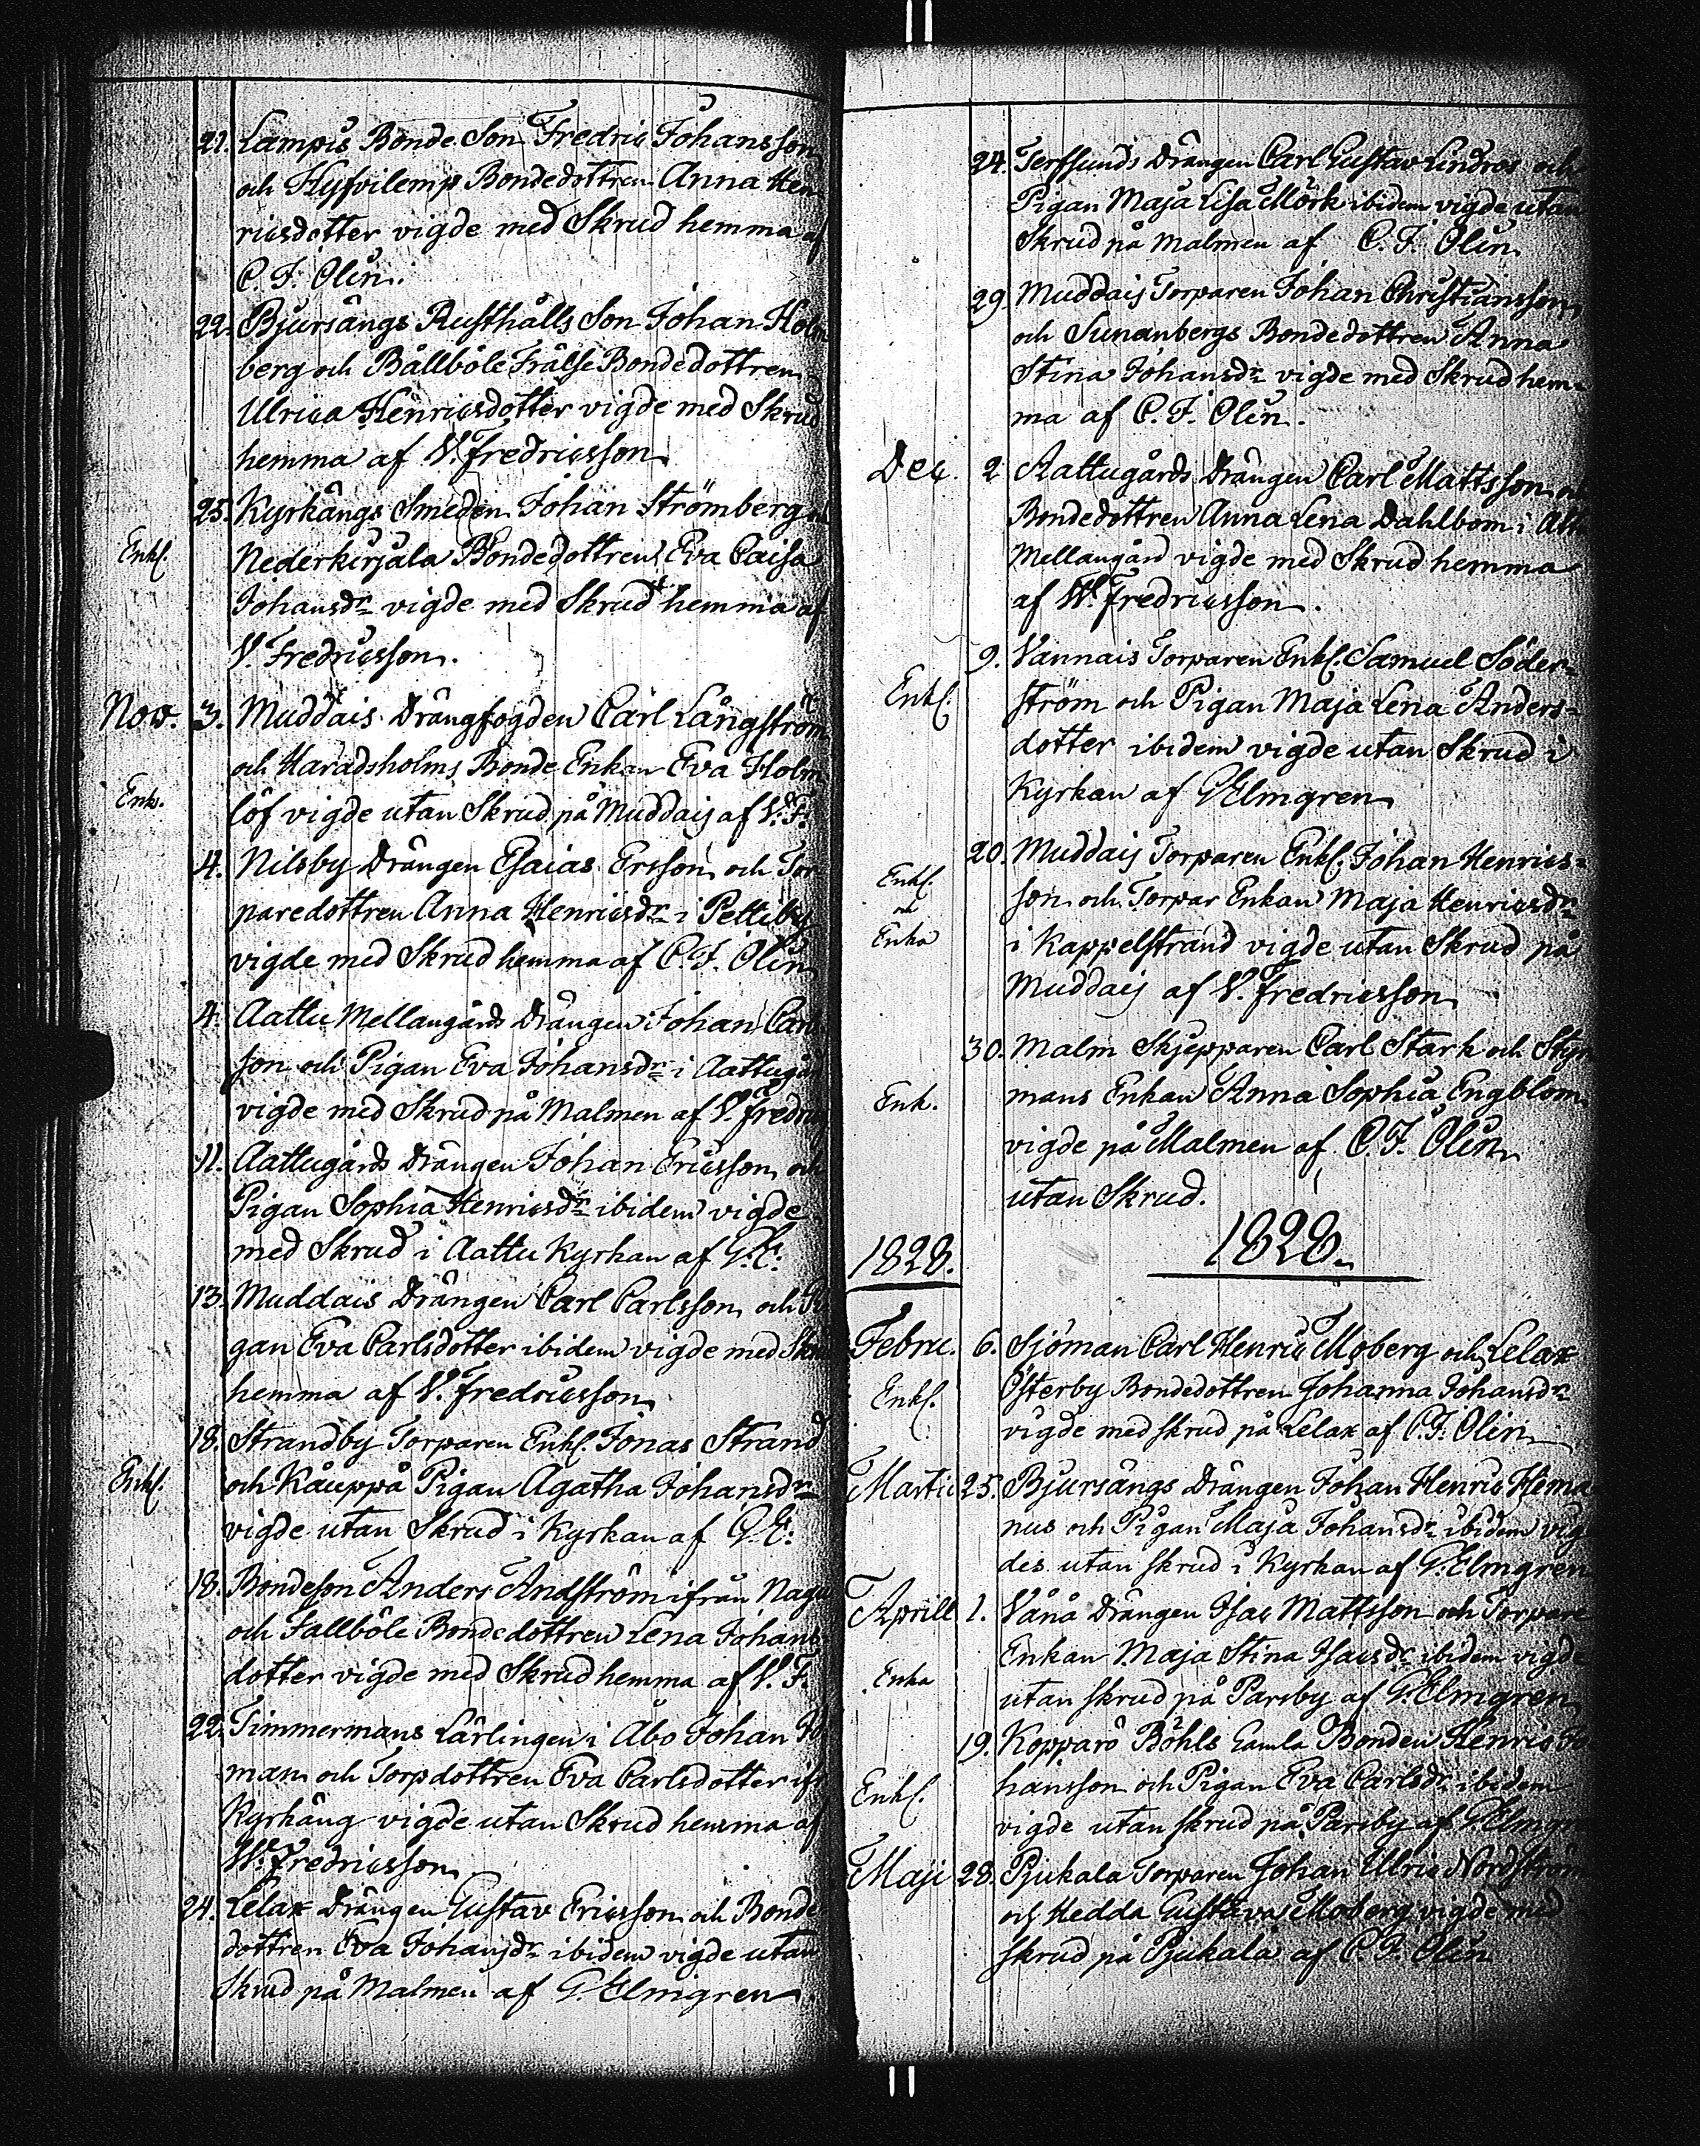 21. Lampis Bonde Son Fredric Johansson
och Hyfvilemp Bondedottren Anna Hen
ricsdotter vigde med Skrud hemma af
C. F. Olin.
22. Bjursängs Rusthålls Son Johan Holm
berg och Bållböle Frälse Bondedottren
Ulrica Henricsdotter vigde med Skrud
hemma af V. Fredricsson
25. Kyrkängs Smeden Johan Strömberg
Enkl. Nederkirjala Bondedottren Eva Caisa
Johansdr vigde med Skrud hemma af
V. Fredricsson.
Nov. 3. Muddais Drängfogden Carl Långström
och Haradsholms Bonde Enkan Eva Holm
Enk. löf vigde utan Skrud på Muddais af V. F.
4. Nilsby Drängen Esaias Ersson och Tor
paredottren Anna Henricsdr i Pettiby
vigde med Skrud hemma af C. F. Olin
4. Aattu Mellangårds Drängen Johan Carl
son och Pigan Eva Johansdr i Aattugård
vigde med Skrud på Malmen af V. Fredric
11. Aattugårds Drängen Johan Ericsson och
Pigan Sophia Henricsdr ibidem vigde
med Skrud i Aattu Kyrkan af G. E.
13. Muddais Drängen Carl Carlsson och Pi
gan Eva Carlsdotter ibidem vigde med Skrud
hemma af V. Fredricsson
18. Strandby Torparen Enkl. Jonas Strand
Enkl. och Kåuppå Pigan Agatha Johansdr
vigde utan Skrud i Kyrkan af G. E.
18. Bondeson Anders Andström ifrån Nagu
och Fallböle Bondedottren Lena Johans
dotter vigde med Skrud hemma af V. F.
22. Timmermans Lärlingen i Åbo Johan
man och Torpdottren Eva Carlsdotter
Kyrkäng vigde utan Skrud hemma af
W. Fredricsson
24. Lelax Drängen Gustav Ericsson och Bonde
dottren Eva Johansdr ibidem vigde utan
Skrud på Malmen af G. Elmgren.
24. Terfsunds Drängen Carl Gustav Lindros och
Pigan Maja Lisa Mörk ibidem vigde utan
Skrud på Malmen af C. F. Olin
29. Muddais Torparen Johan Christiansson
och Sunanbergs Bondedottren Anna
Stina Johansdr vigde med Skrud hem-
ma af C. F. Olin.
Dec. 2 Aattugårds Drängen Carl Mattsson
Bondedottren Anna Lena Dahlbom i
Mellangård vigde med Skrud hemma
af W. Fredricsson.
9. Vannais Torparen Enkl. Samuel Söder-
Enkl. ström och Pigan Maja Lena Anders-
dotter ibidem vigde utan Skrud i
Kyrkan af G Elmgren
20. Muddais Torparen Enkl. Johan Henrics-
Enkl. och Enka son och Torpar Enkan Maja Henricsdr
i Kappelstrand vigde utan Skrud på
Muddais af V. Fredricsson
30. Malm Skjepparen Carl Stark och Styr
Enk. mans Enkan Anna Sophia Engblom
vigde på Malmen af C. F. Olin
utan Skrud.
1828. 1828.
Febru. 6. Sjöman Carl Henric Moberg och Lelax
Enkl. Österby Bondedottren Johanna Johansdr
vigde med skrud på Lelax af C. F. Olin
Martii 25. Bjursängs Drängen Johan Henric
nus och Pigan Maja Johansdr ibidem vig
des utan skrud i Kyrkan af G. Elmgren
Aprill 1. Vånå Drängen Isac Mattsson och Torpare
Enka Enkan Maja Stina Isacsdr ibidem vigde
utan skrud på Parsby af G. Elmgren
19. Kopparö Böhls Gamla Bonden Henric Jo
Enkl. hansson och Pigan Eva Carlsdr ibidem
vigde utan skrud på Parsby af G Elmgr
Maji 28. Pjukala Torparen Johan Ulric Nordström
och Hedda Gustava Moberg vigde med
skrud på Pjukala af C. F. Olin